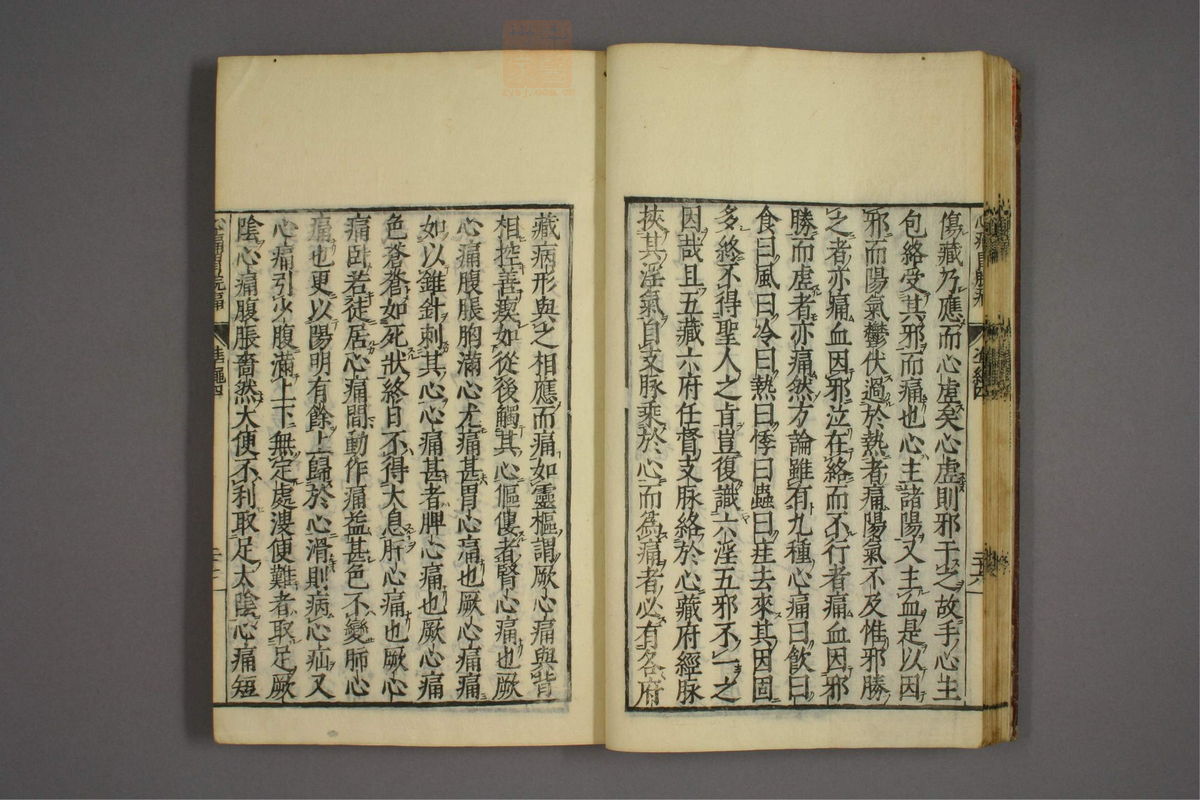 傷藏乃應而心虛矣心虛則邪干之故手心主
包絡受其邪而痛也心主諸陽又主血是以因
邪而陽氣鬱伏過於熱者痛陽氣不及惟邪勝
之者亦痛血因邪泣在絡而不行者痛血因邪
勝而虛者亦痛然方論雖有九種心痛曰飲曰
食曰風曰冷曰熱曰悸曰蟲曰疰去來其因固
多終不得聖人之旨豈復識六淫五邪不一之
因哉且五藏六府任督支脉絡於心藏府經脉
挾其淫氣自支脉乘於心而爲痛者必有各府
藏病形與之相應而痛如靈樞謂厥心痛與背
相控善瘈如從後觸其心傴僂者腎心痛也厥
心痛腹脹胸滿心尤痛甚胃心痛也厥心痛痛
如以錐針刺其心心痛甚者脾心痛也厥心痛
色蒼蒼如死狀終日不得大息肝心痛也厥心
痛臥若徒居心痛間動作痛益甚色不變肺心
痛也更以陽明有餘上歸於心滑則病心疝又
心痛引少腹滿上下無定處溲便難者取足厥
陰心痛腹脹嗇然大便不利取足太陰心痛短